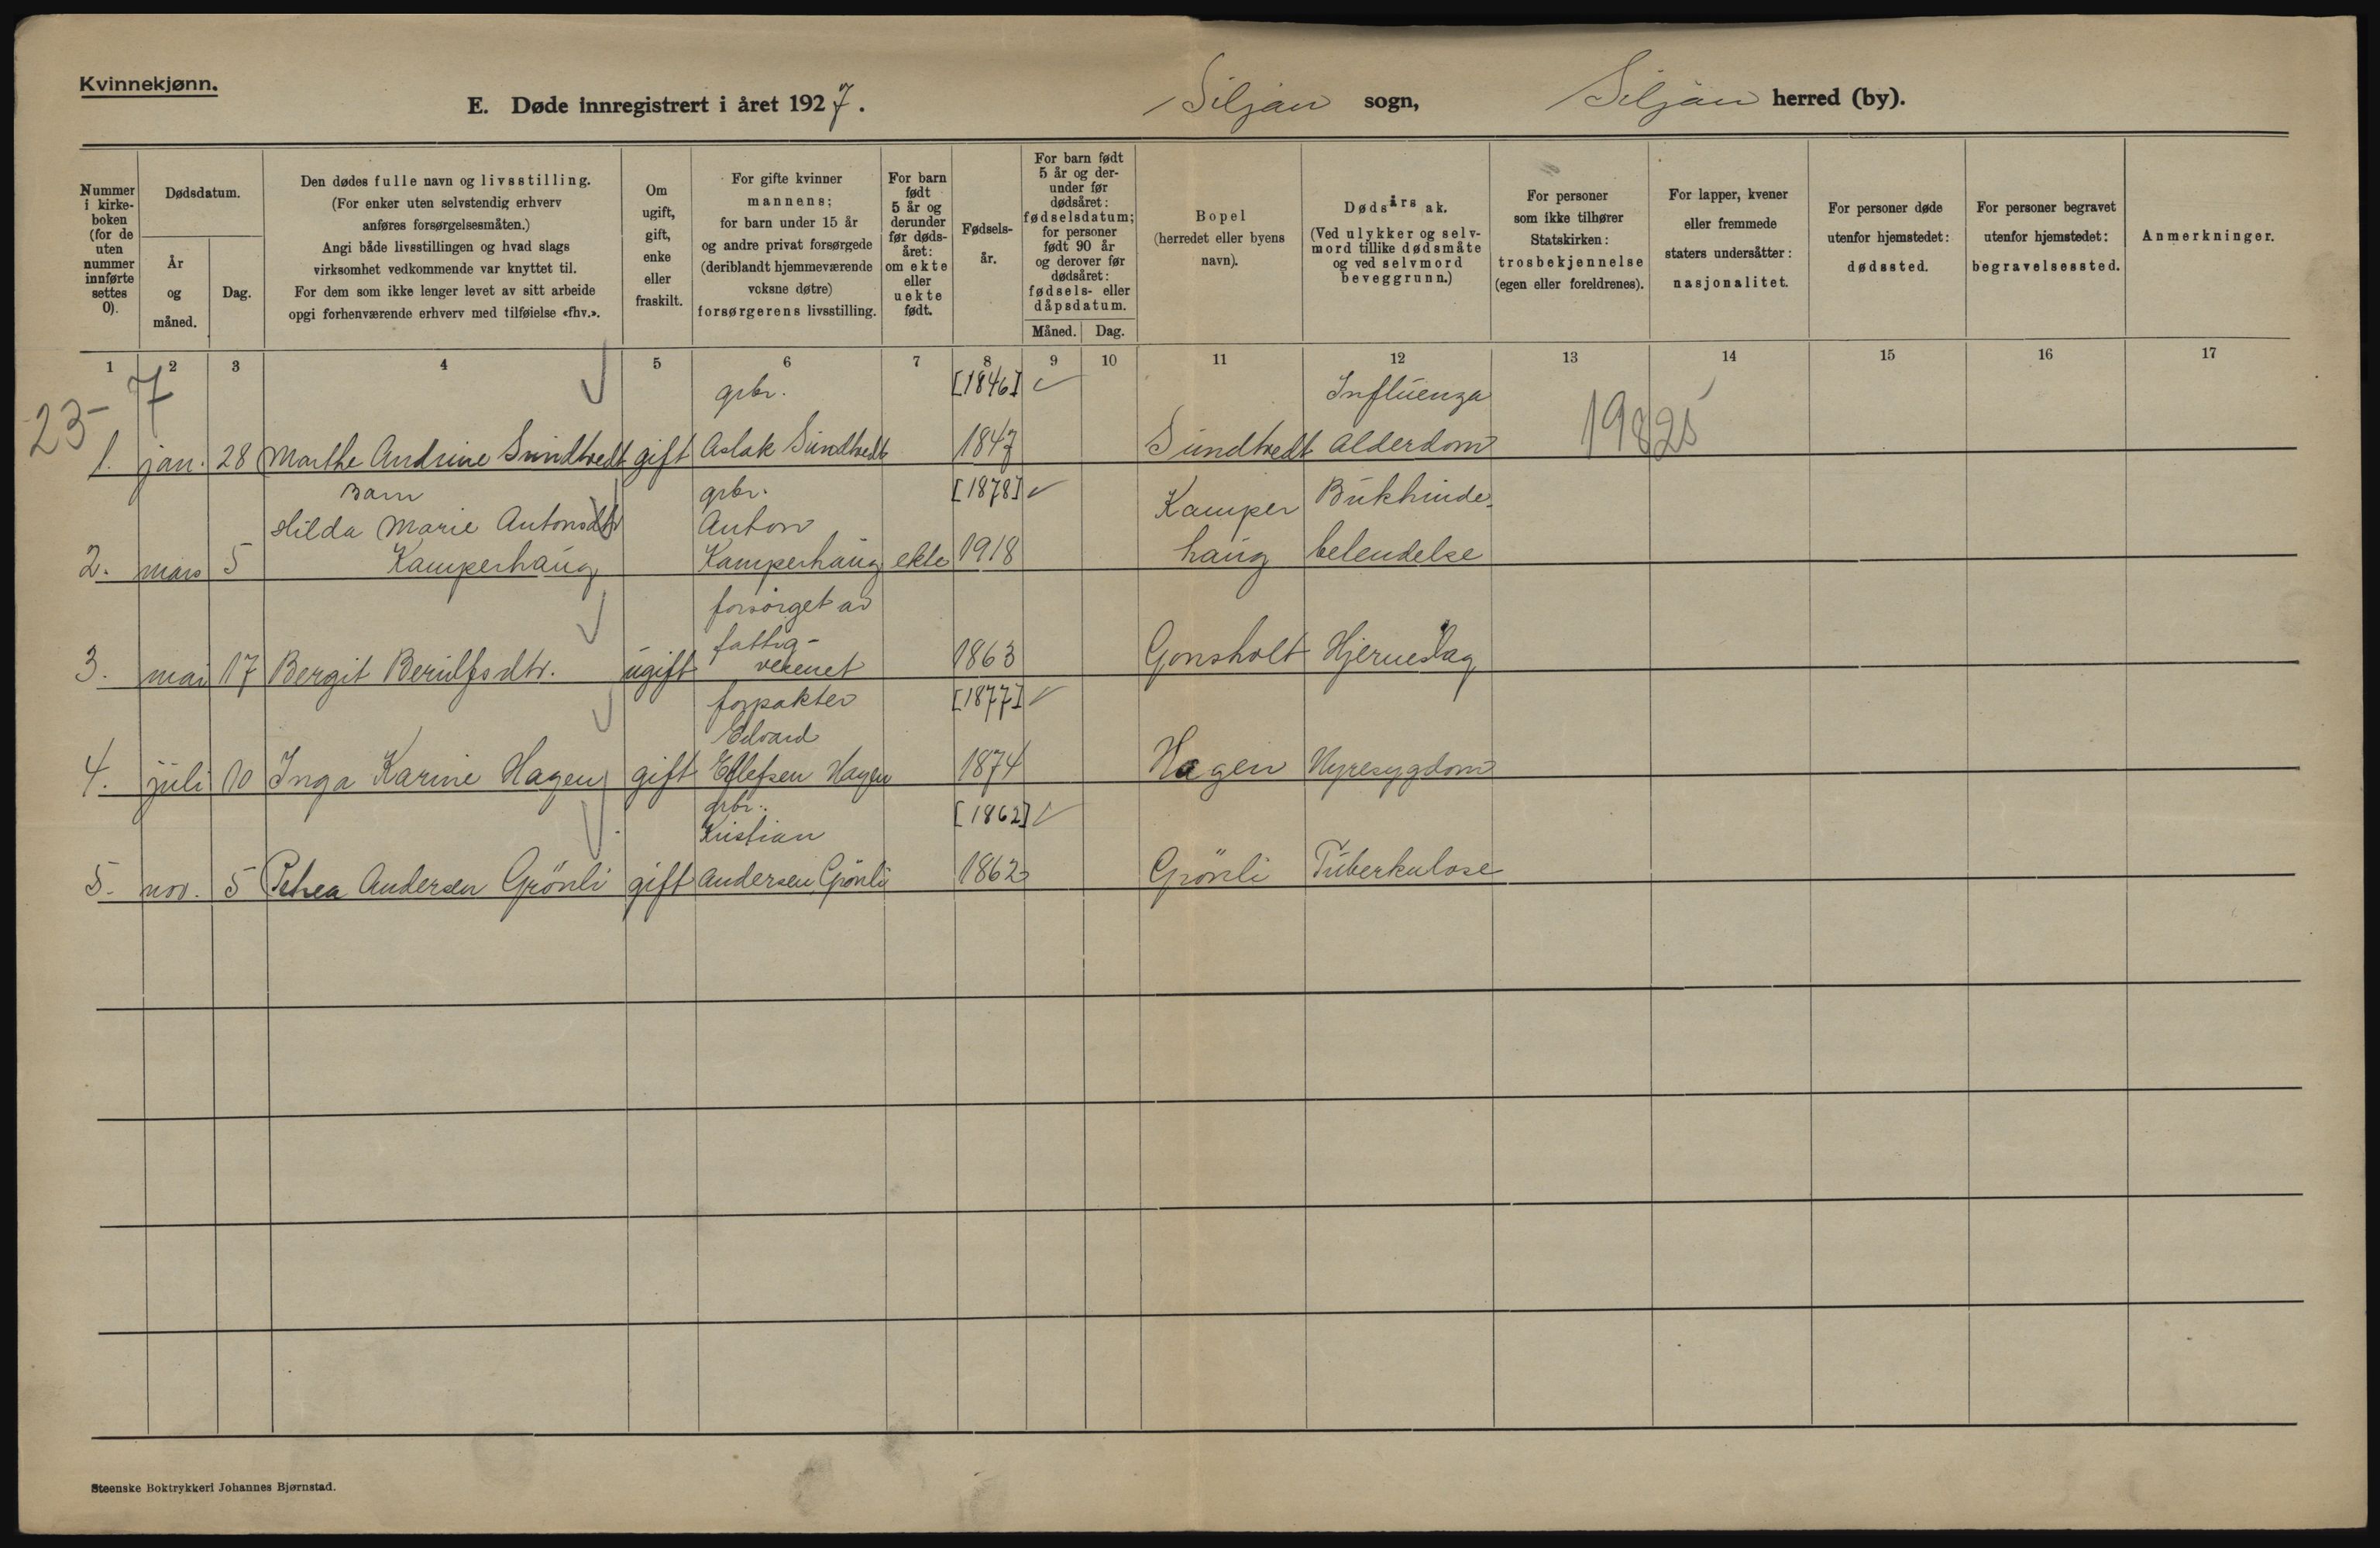 Kvinnekjønn.
E. Døde innregistrert i året 1927.
Siljan sogn, Siljan herred (by).
Nummer i kirke- boken (for de uten nummer innførte settes 0).
Dødsdatum.
År og måned.
Dag.
Den dødes fulle navn og livsstilling.
(For enker uten selvstendig erhverv
anføres forsørgelsesmåten.)
Angi både livsstillingen og hvad slags
virksomhet vedkommende var knyttet til.
For dem som ikke lenger levet av sitt arbeide
opgi forhenværende erhverv med tilføielse «fhv.».
Om ugift, gift, enke eller fraskilt.
For gifte kvinner
mannens;
for barn under 15 år
og andre privat forsørgede
(deriblandt hjemmeværende
voksne døtre)
forsørgerens livsstilling.
For barn født 5 år og derunder før døds- året: om ekte eller uekte født.
Fødsels- år.
For barn født 5 år og der- under før dødsåret: fødselsdatum; for personer født 90 år og derover før dødsåret: fødsels- eller dåpsdatum.
Måned. Dag.
Bopel
(herredet eller byens
navn).
Dødsårsak.
(Ved ulykker og selv-
mord tillike dødsmåte
og ved selvmord
beveggrunn.)
For personer
som ikke tilhører
Statskirken:
trosbekjennelse
(egen eller foreldrenes).
For lapper, kvener
eller fremmede
staters undersåtter:
nasjonalitet.
For personer døde
utenfor hjemstedet:
dødssted.
For personer begravet
utenfor hjemstedet:
begravelsessted.
Anmerkninger.
1 2 3 4 5 6 7 8 9 10 11 12 13 14 15 16 17
23- 7 grbr. [1846] Influenza 19825
1. jan. 28 Marthe Andrine Sundtvedt gift Aslak Sundtvedt 1847 Sundtvedt Alderdom
Barn grbr. [1878] Kamper Bukhinde-
Hilda Marie Antonsdtr Anton
2. mars 5 Kamperhaug Kamperhaug ekte 1918 haug betendelse
forsørget av
fattig-
3. mai 17 Bergit Berulfsdtr. ugift vesenet 1863 Gonsholt Hjerneslag
forpakter [1877]
Edvard
4. juli 10 Inga Karine Hagen gift Ellefsen Hagen 1874 Hagen Nyresygdom
grbr. [1862]
Kristian
5. nov. 5 Thea Andersen Grönli gift Andersen Grönli 1862 Grönli Tuberkulose
Steenske Boktrykkeri Johannes Bjørnstad.